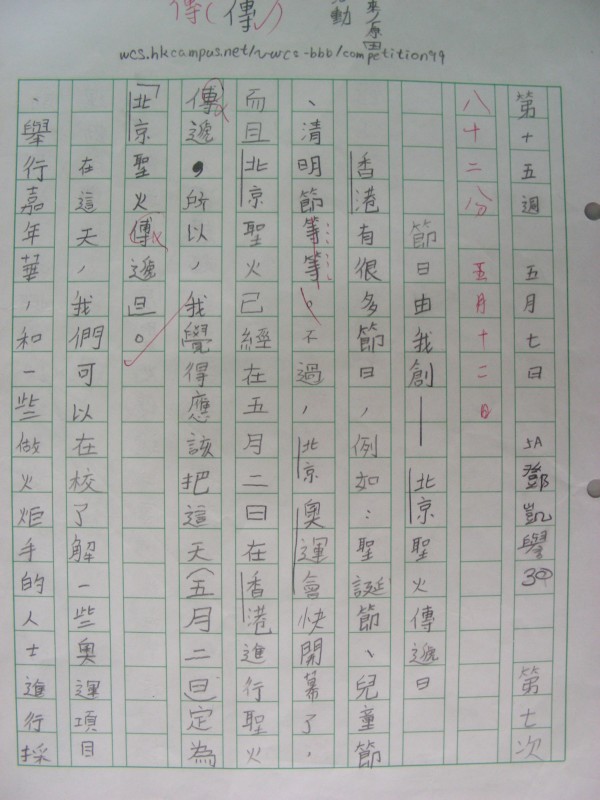 (傳)
動
wcs.hkcampus.net/~wcs-bbb/competition99
第十五週 五月七日 5A 鄧凱譽 30 第七次
八十二分 五月十二日
節日由我創——北京聖火傳遞日
香港有很多節日，例如：聖誕節、兒童節
、清明節等等。不過，北京奧運會快開幕了，
而且北京聖火已經在五月二日在香港進行聖火
傳遞，所以，我覺得應該把這天(五月二日)定為
「北京聖火傳遞日」。
在這天，我們可以在校了解一些奧運項目
、舉行嘉年華，和一些做火炬手的人士進行採